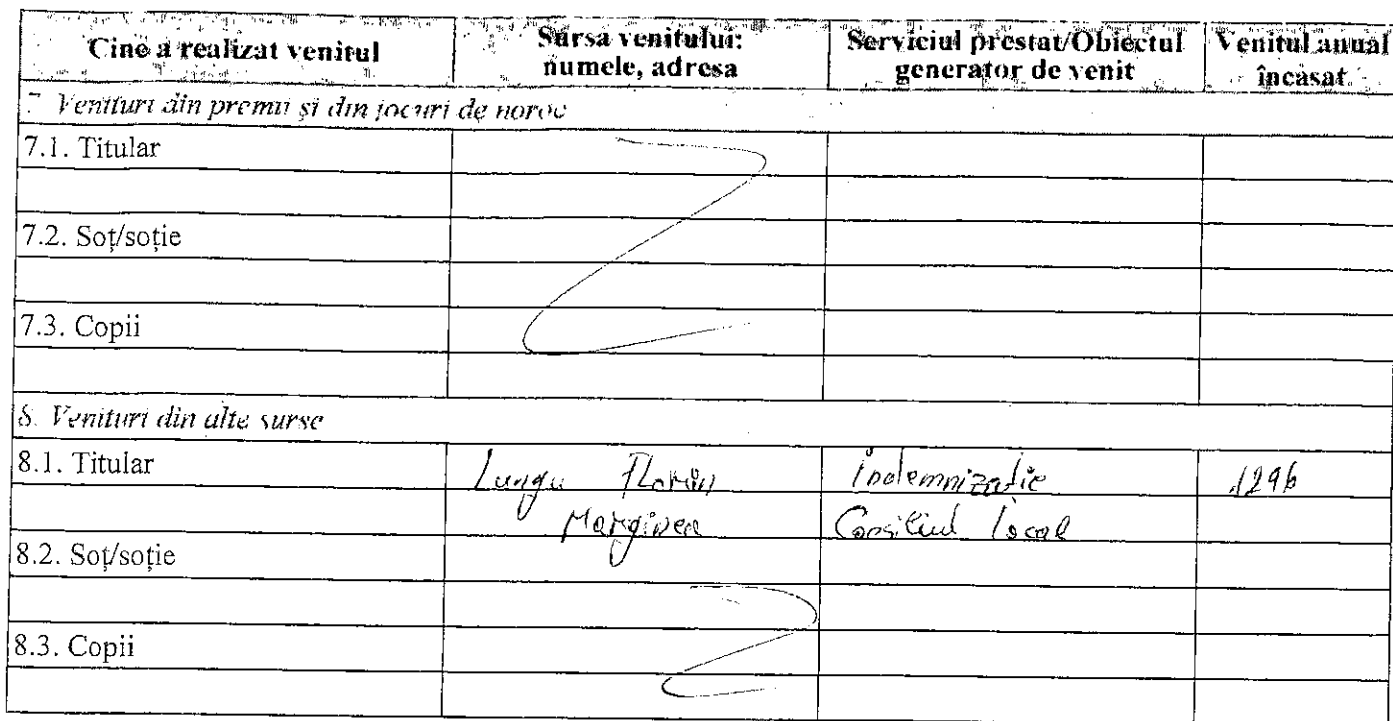 Cine a realizat venitul
Sursa venitului:
numele, adresa
Serviciul prestat/Obiectul
generator de venit
Venitul anual
încasat
7. Venituri din premii și din jocuri de noroc
7.1. Titular
7.2. Soț/soție
7.3. Copii
8. Venituri din alte surse
8.1. Titular
Lungu Florin
Marginea
Indemnizatie
Consiliul local
1296
8.2. Soț/soție
8.3. Copii